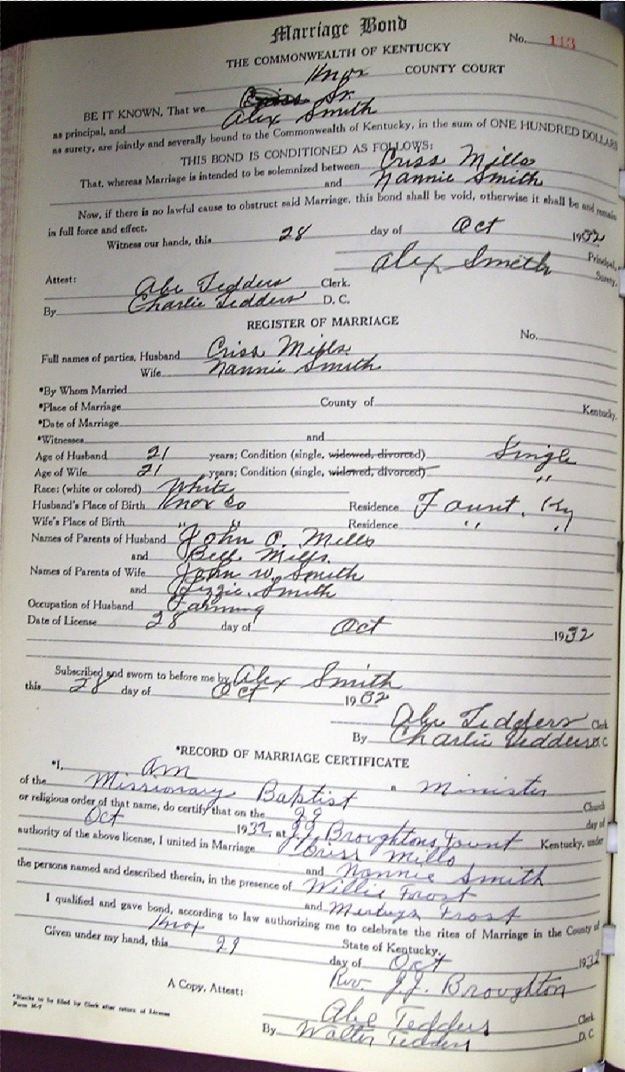 Marriage Bond
No. 113
THE COMMONWEALTH OF KENTUCKY
Knox COUNTY COURT
BE IT KNOWN, That we Criss Sr.
as principal, and Alex Smith
as surety, are jointly and severally bound to the Commonwealth of Kentucky, in the sum of ONE HUNDRED DOLLARS
THIS BOND IS CONDITIONED AS FOLLOWS:
That, whereas Marriage is intended to be solemnized between Criss Mills
and Nannie Smith
Now, if there is no lawful cause to obstruct said Marriage, this bond shall be void, otherwise it shall be and remain
in full force and effect.
Witness our hands, this 28 day of Oct 1932
Principal,
Alex Smith Surety.
Attest: Abe Tedders Clerk.
By Charlie Tedders D. C.
REGISTER OF MARRIAGE
No.
Full names of parties, Husband Criss Mills
Wife Nannie Smith
*By Whom Married
*Place of Marriage County of Kentucky.
*Date of Marriage
*Witnesses and
Age of Husband 21 years; Condition (single, widowed, divorced) Single
Age of Wife 21 years; Condition (single, widowed, divorced) "
Race: (white or colored) White
Husband's Place of Birth Knox Co Residence Fount, Ky
Wife's Place of Birth " " Residence " "
Names of Parents of Husband John C. Mills
and Bell Mills
Names of Parents of Wife John W. Smith
and Lizzie Smith
Occupation of Husband Farming
Date of License 28 day of Oct 1932
Subscribed and sworn to before me by Alex Smith
this 28 day of Oct 1932
Abe Tedders Clerk
By Charlie Tedders D. C
*RECORD OF MARRIAGE CERTIFICATE
*I, am a Minister
of the Missionary Baptist Church
or religious order of that name, do certify that on the 29 day of
Oct 1932, at J.J. Broughtons Fount Kentucky, under
authority of the above license, I united in Marriage Criss Mills
and Nannie Smith
the persons named and described therein, in the presence of Willie Frost
and Frost
I qualified and gave bond, according to law authorizing me to celebrate the rites of Marriage in the County of
Knox State of Kentucky.
Given under my hand, this 29 day of Oct 1932
Rev. J.J. Broughton
A Copy, Attest: Abe Tedders Clerk
By Walter Tedders D. C
*Blanks to be filled by Clerk after return of License
Form M-7